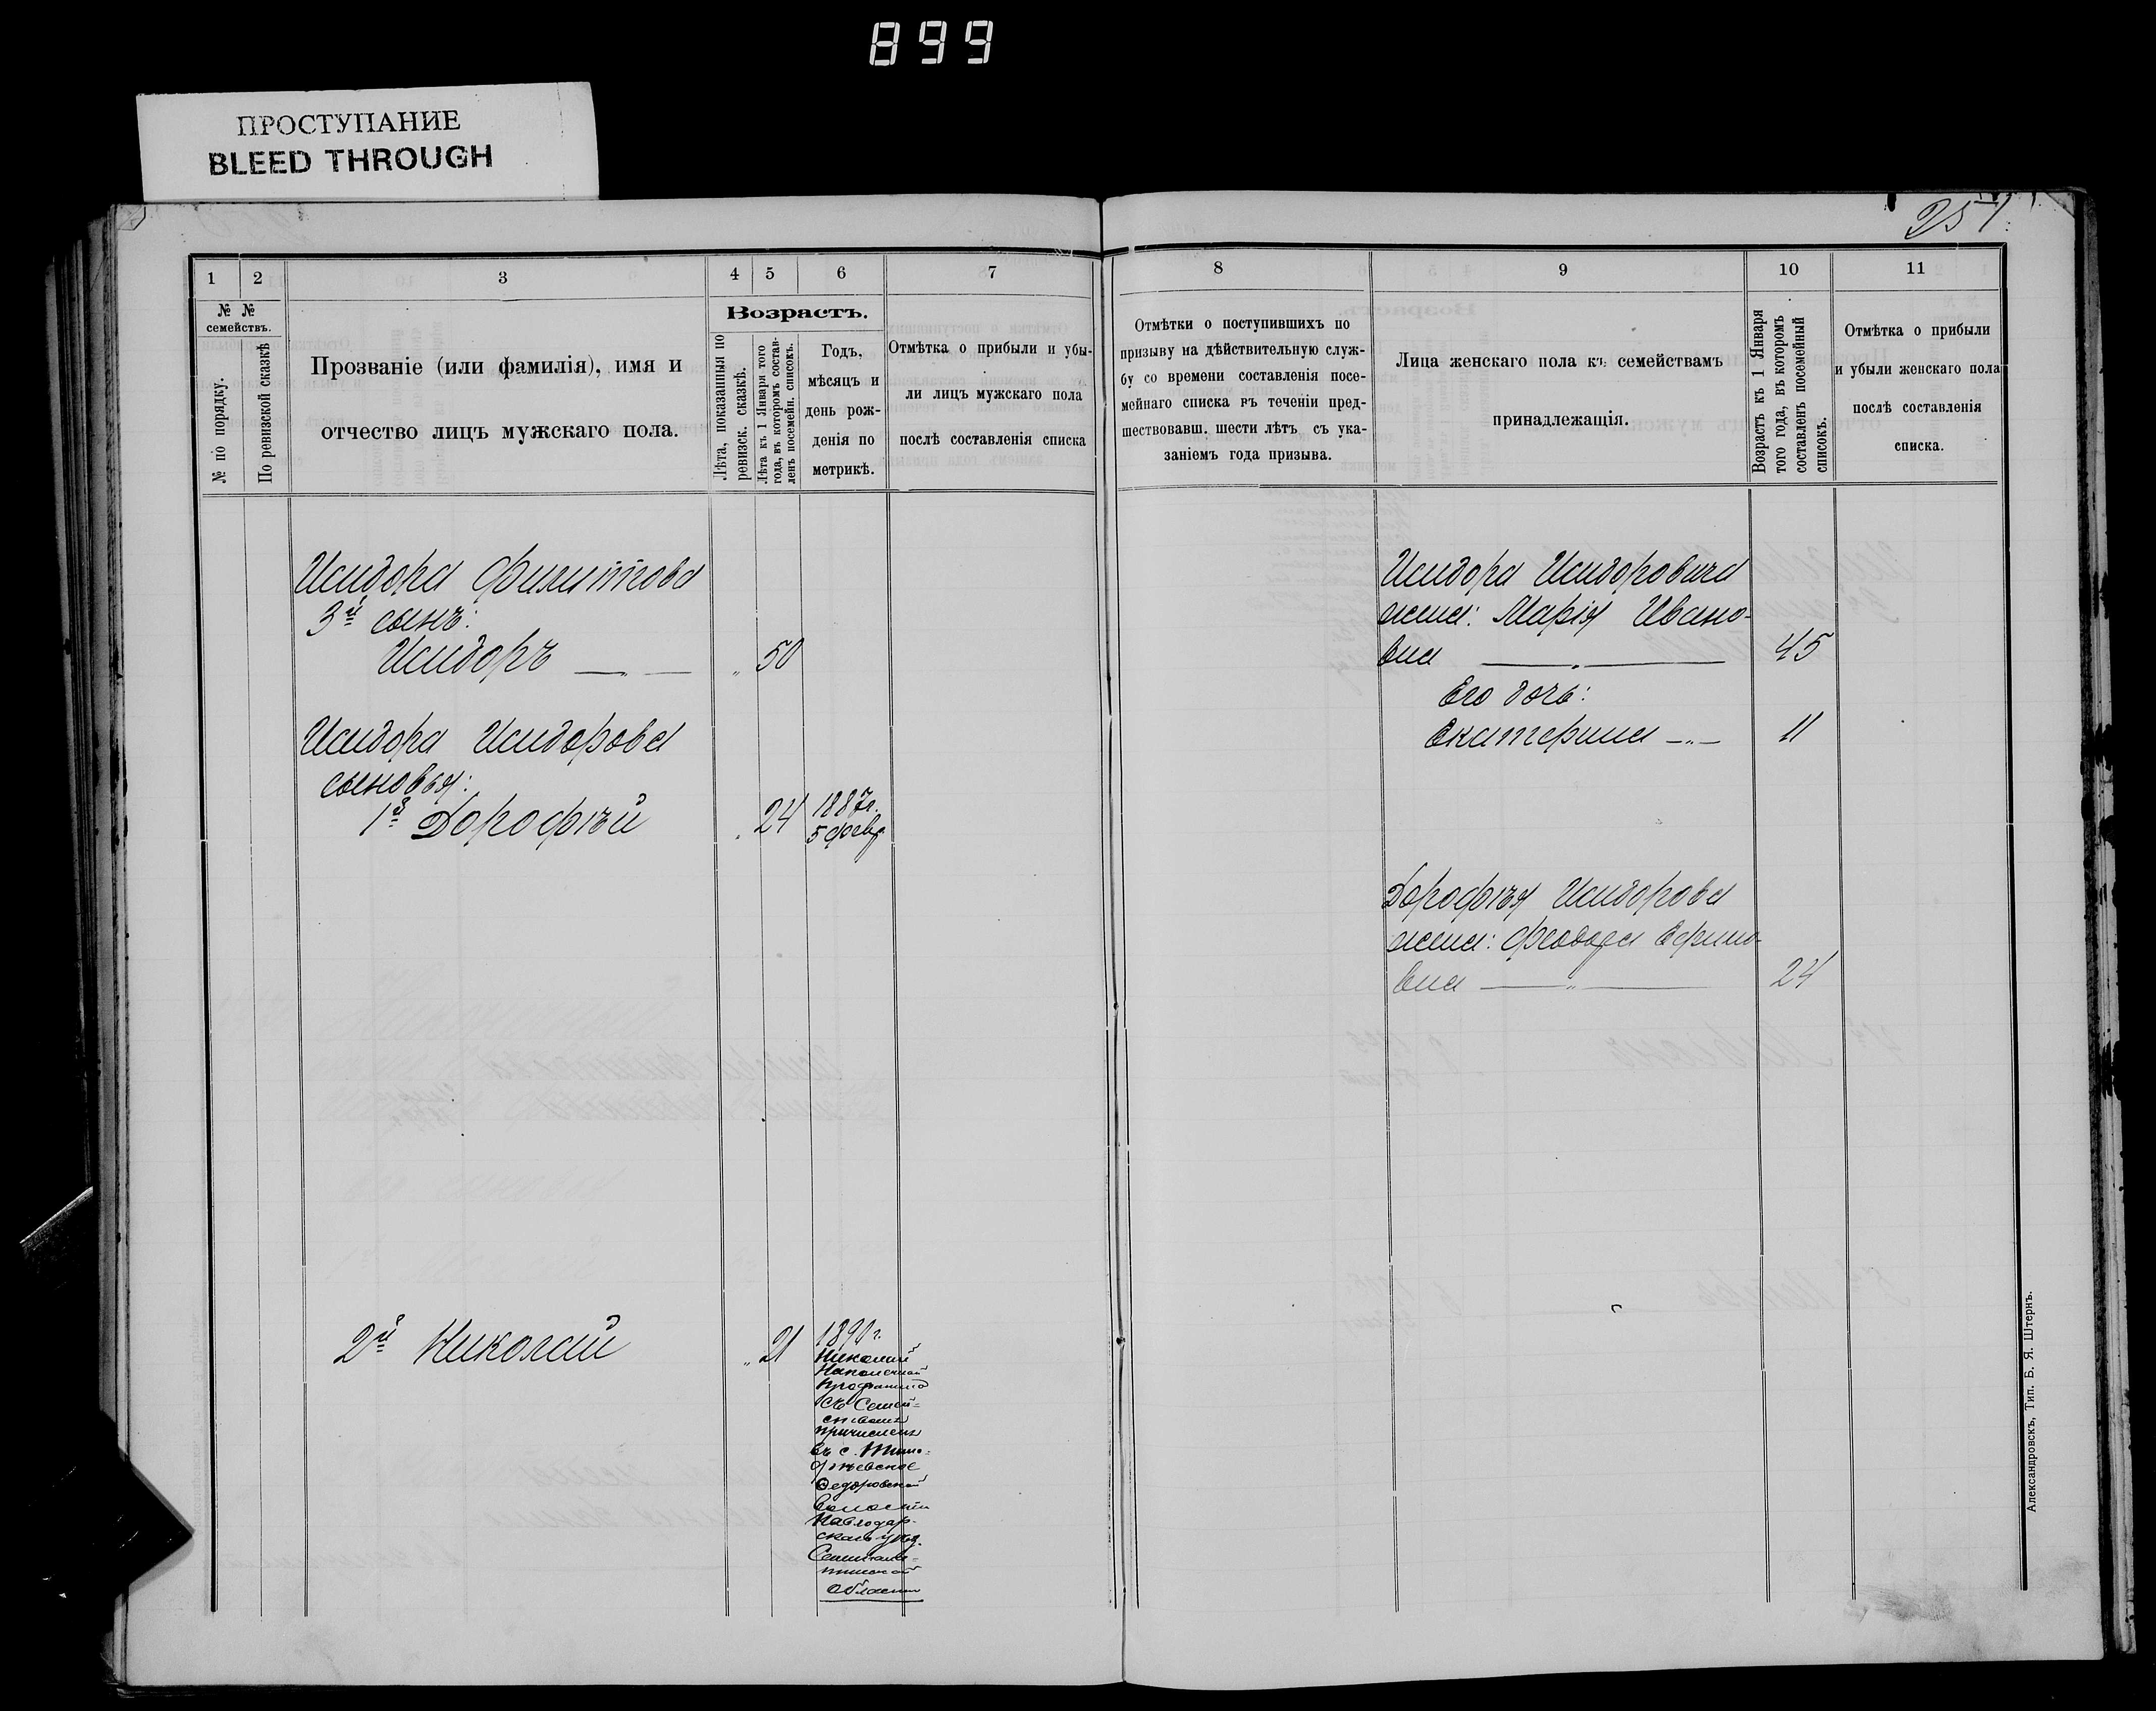 899
ПРОСТУПАНИЕ
BLEED THROUGH
251.
1 2 3 4 5 6 7
№ № семействъ.
№ по порядку.
По ревизской сказкѣ
Прозваніе (или фамилія), имя и
отчество лицъ мужскаго пола.
Возрастъ.
Лѣта, показанныя по
ревизск. сказкѣ.
Лѣта къ 1 Января того
года, въ которомъ состав-
ленъ посемейн. списокъ.
Годъ,
мѣсяцъ и
день рож-
денія по
метрикѣ.
Отмѣтка о прибыли и убы-
ли лицъ мужскаго пола
послѣ составленія списка
Исидора Филиппова
3й сынъ:
Исидоръ — " — " 50
Исидора Исидорова
сыновья:
1й Дорофѣй " 24 1887г.
5 февр
2й Николай " 21 1890г.
Николай
съ Семей-
ствомъ
причисленъ
въ с.
Федоровской
Волости
Павлодар-
скаго уѣзд.
Семипала-
тинской
Области
8 9 10 11
Отмѣтки о поступившихъ по
призыву на дѣйствительную служ-
бу со времени составленія посе-
мейнаго списка въ теченіи пред-
шествовавш. шести лѣтъ съ ука-
заніемъ года призыва.
Лица женскаго пола къ семействамъ
принадлежащія.
Возрастъ къ 1 Января
того года, въ которомъ
составленъ посемейный
списокъ.
Отмѣтка о прибыли
и убыли женскаго пола
послѣ составленія
списка.
Исидора Исидоровича
жена: Марія Ивано-
вна — " — 45
Его дочь:
Екатерина — " — 11
Дорофѣя Исидорова
жена: Феодора Ефимо-
вна — " — 24
Александровскъ, Тип. Б. Я. Штернъ.